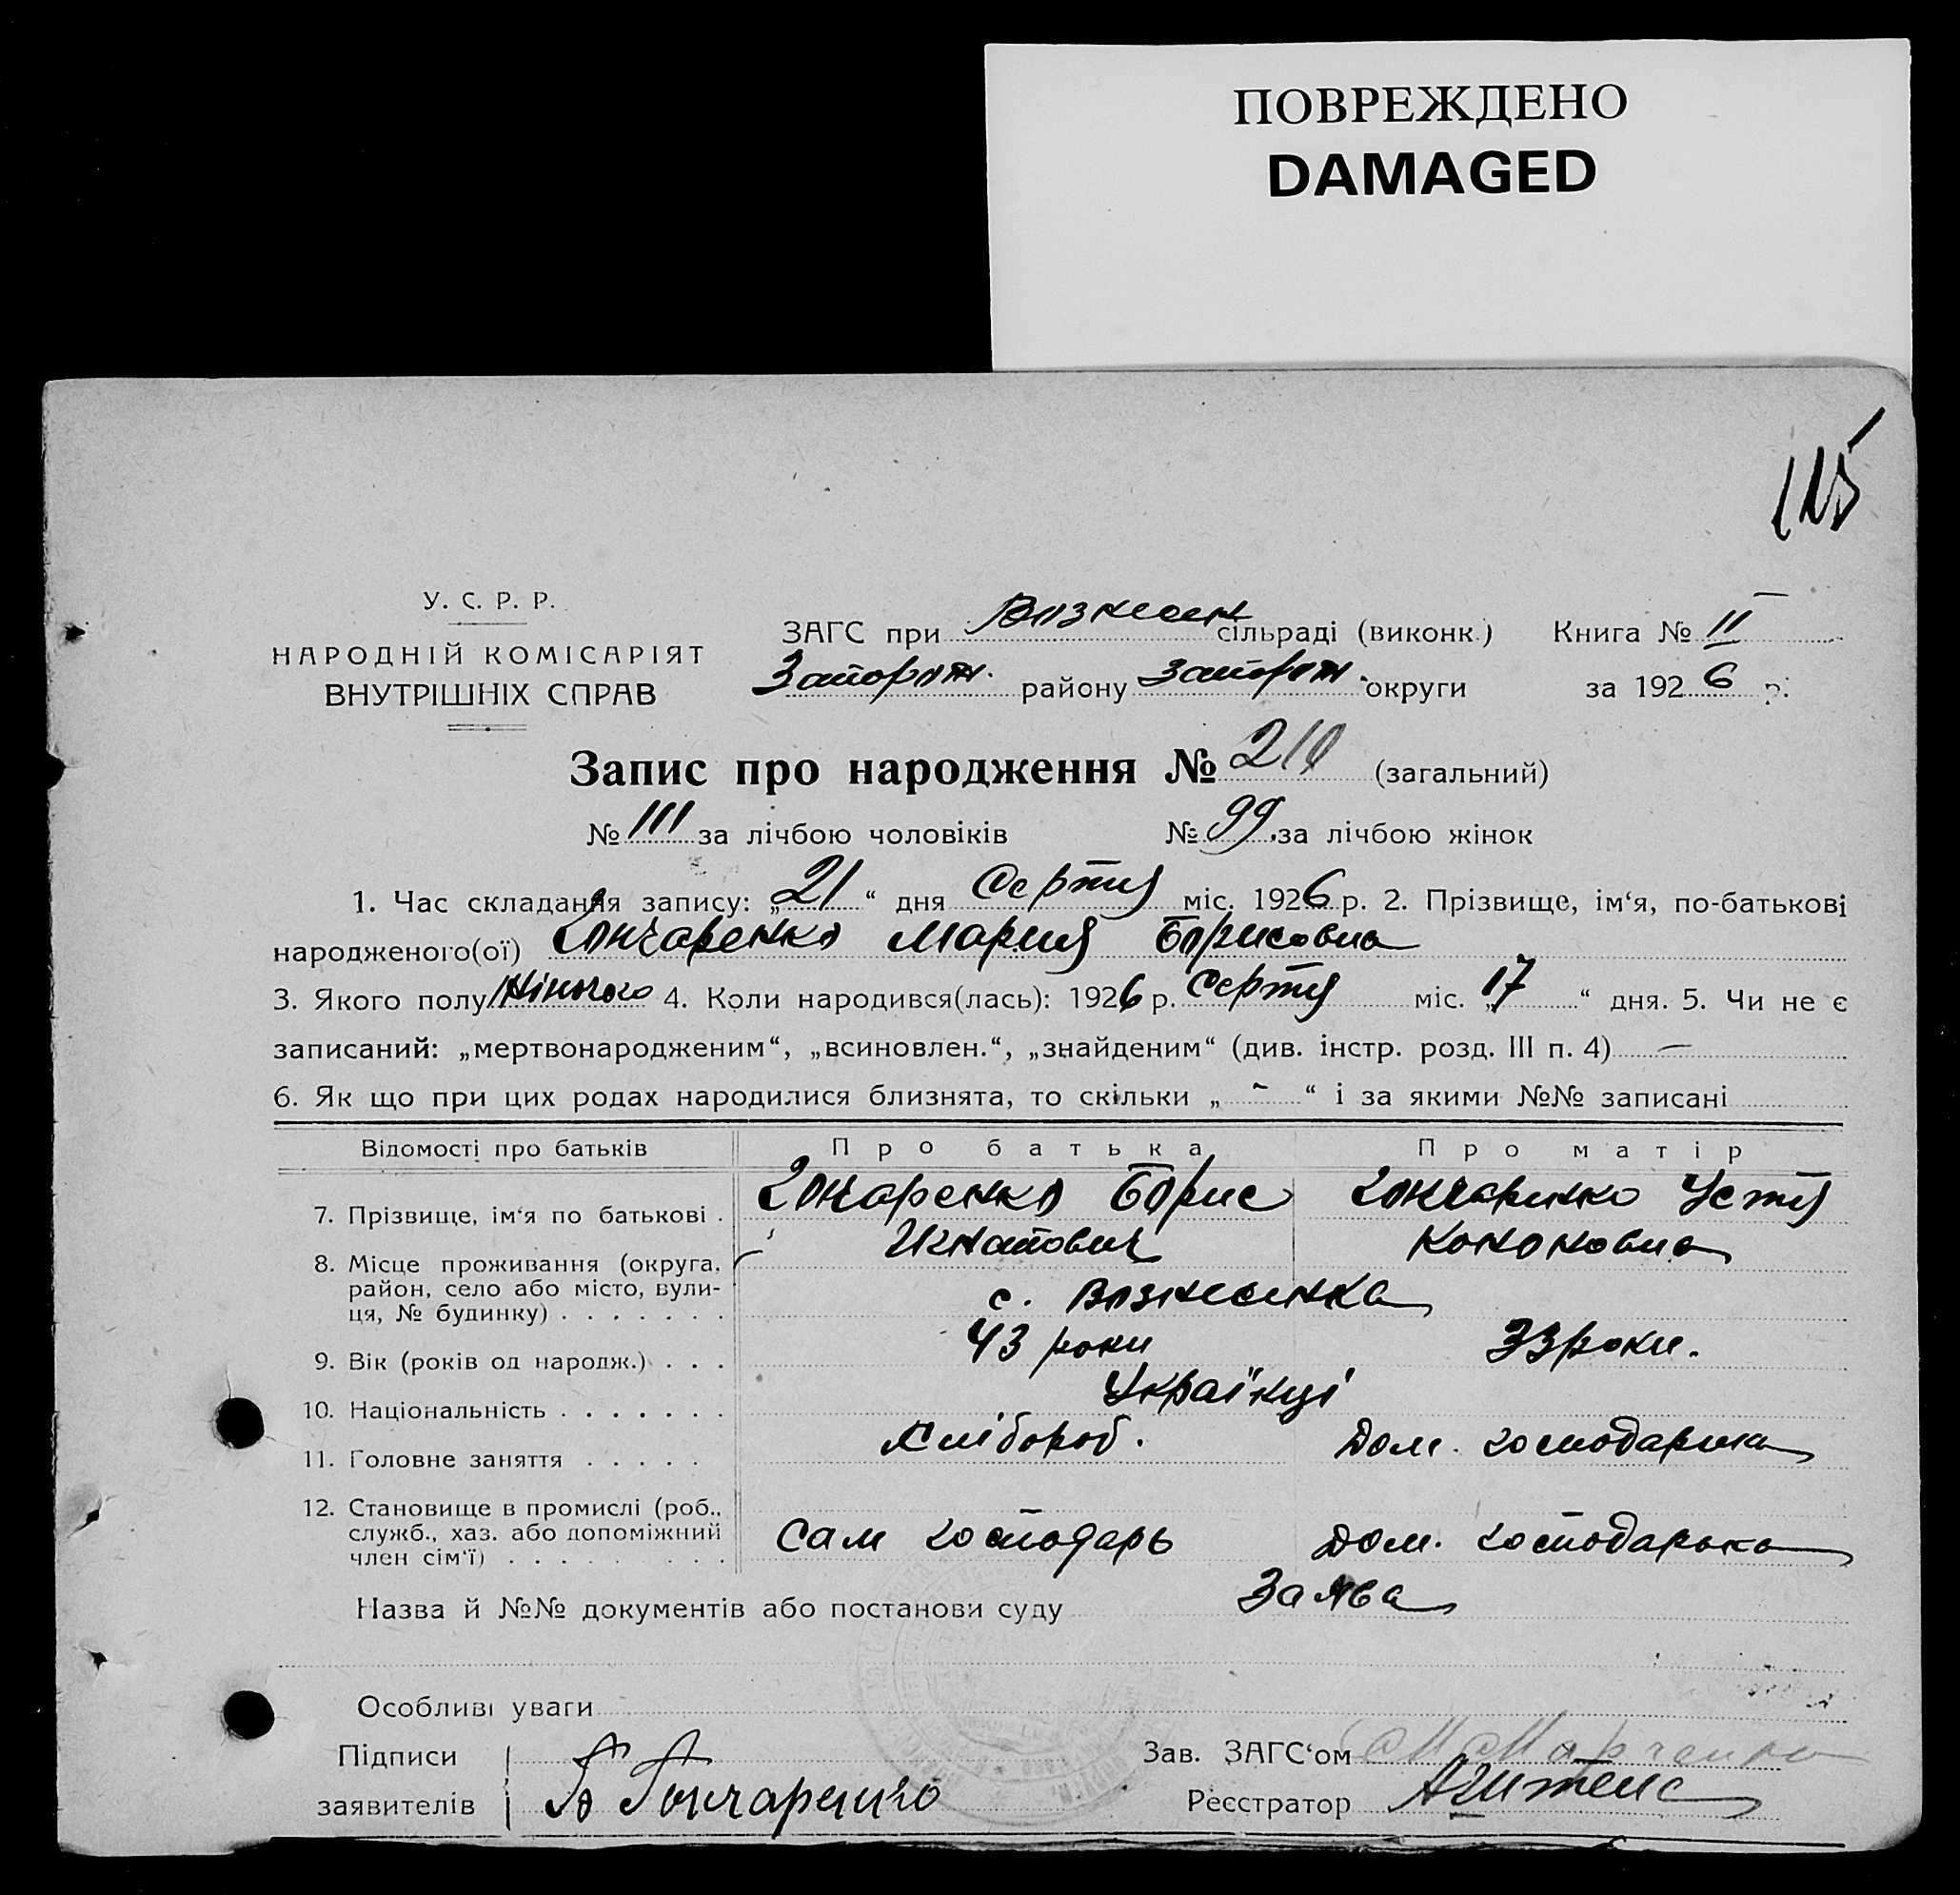 ПОВРЕЖДЕНО
DAMAGED
115
У. С. Р. Р.
НАРОДНІЙ КОМІСАРІЯТ
ВНУТРІШНІХ СПРАВ
ЗАГС при Вознесен сільраді (виконк.) Книга № II
Запорож. району Запорож. округи за 1926 р.
Запис про народження № 210 (загальний)
№ 111 за лічбою чоловіків № 99 за лічбою жінок
1. Час складання запису: „21“ дня Серпня міс. 1926 р. 2. Прізвище, ім‘я, по-батькові
народженого(ої) Гончаренко Мария Борисовна
3. Якого полу Жіночого 4. Коли народився(лась): 1926 р. Серпня міс. „17“ дня. 5. Чи не є
записаний: „мертвонародженим“, „всиновлен.“, „знайденим“ (див. інстр. розд. III п. 4) —
6. Як що при цих родах народилися близнята, то скільки „ ~ “ і за якими №№ записані
Відомості про батьків Про батька Про матір
7. Прізвище, ім‘я по батькові . Гончаренко Борис Гончаренко Устя
Игнатович Кононовна
8. Місце проживання (округа, район, село або місто, вулиця, № будинку) . . . . . . . с. Вознесенка
9. Вік (років од народж.) . . . 43 роки 33 роки.
10. Національність . . . . . . . Українці
11. Головне заняття . . . . . Хлібороб. Дом. господарка
12. Становище в промислі (роб., служб., хаз. або допоміжний член сім‘ї) . . . . . . . . Сам господарь Дом. господарка
Назва й №№ документів або постанови суду Заява
Особливі уваги
Підписи Зав. ЗАГС‘ом Марченко
заявителів Гончаренко Реєстратор